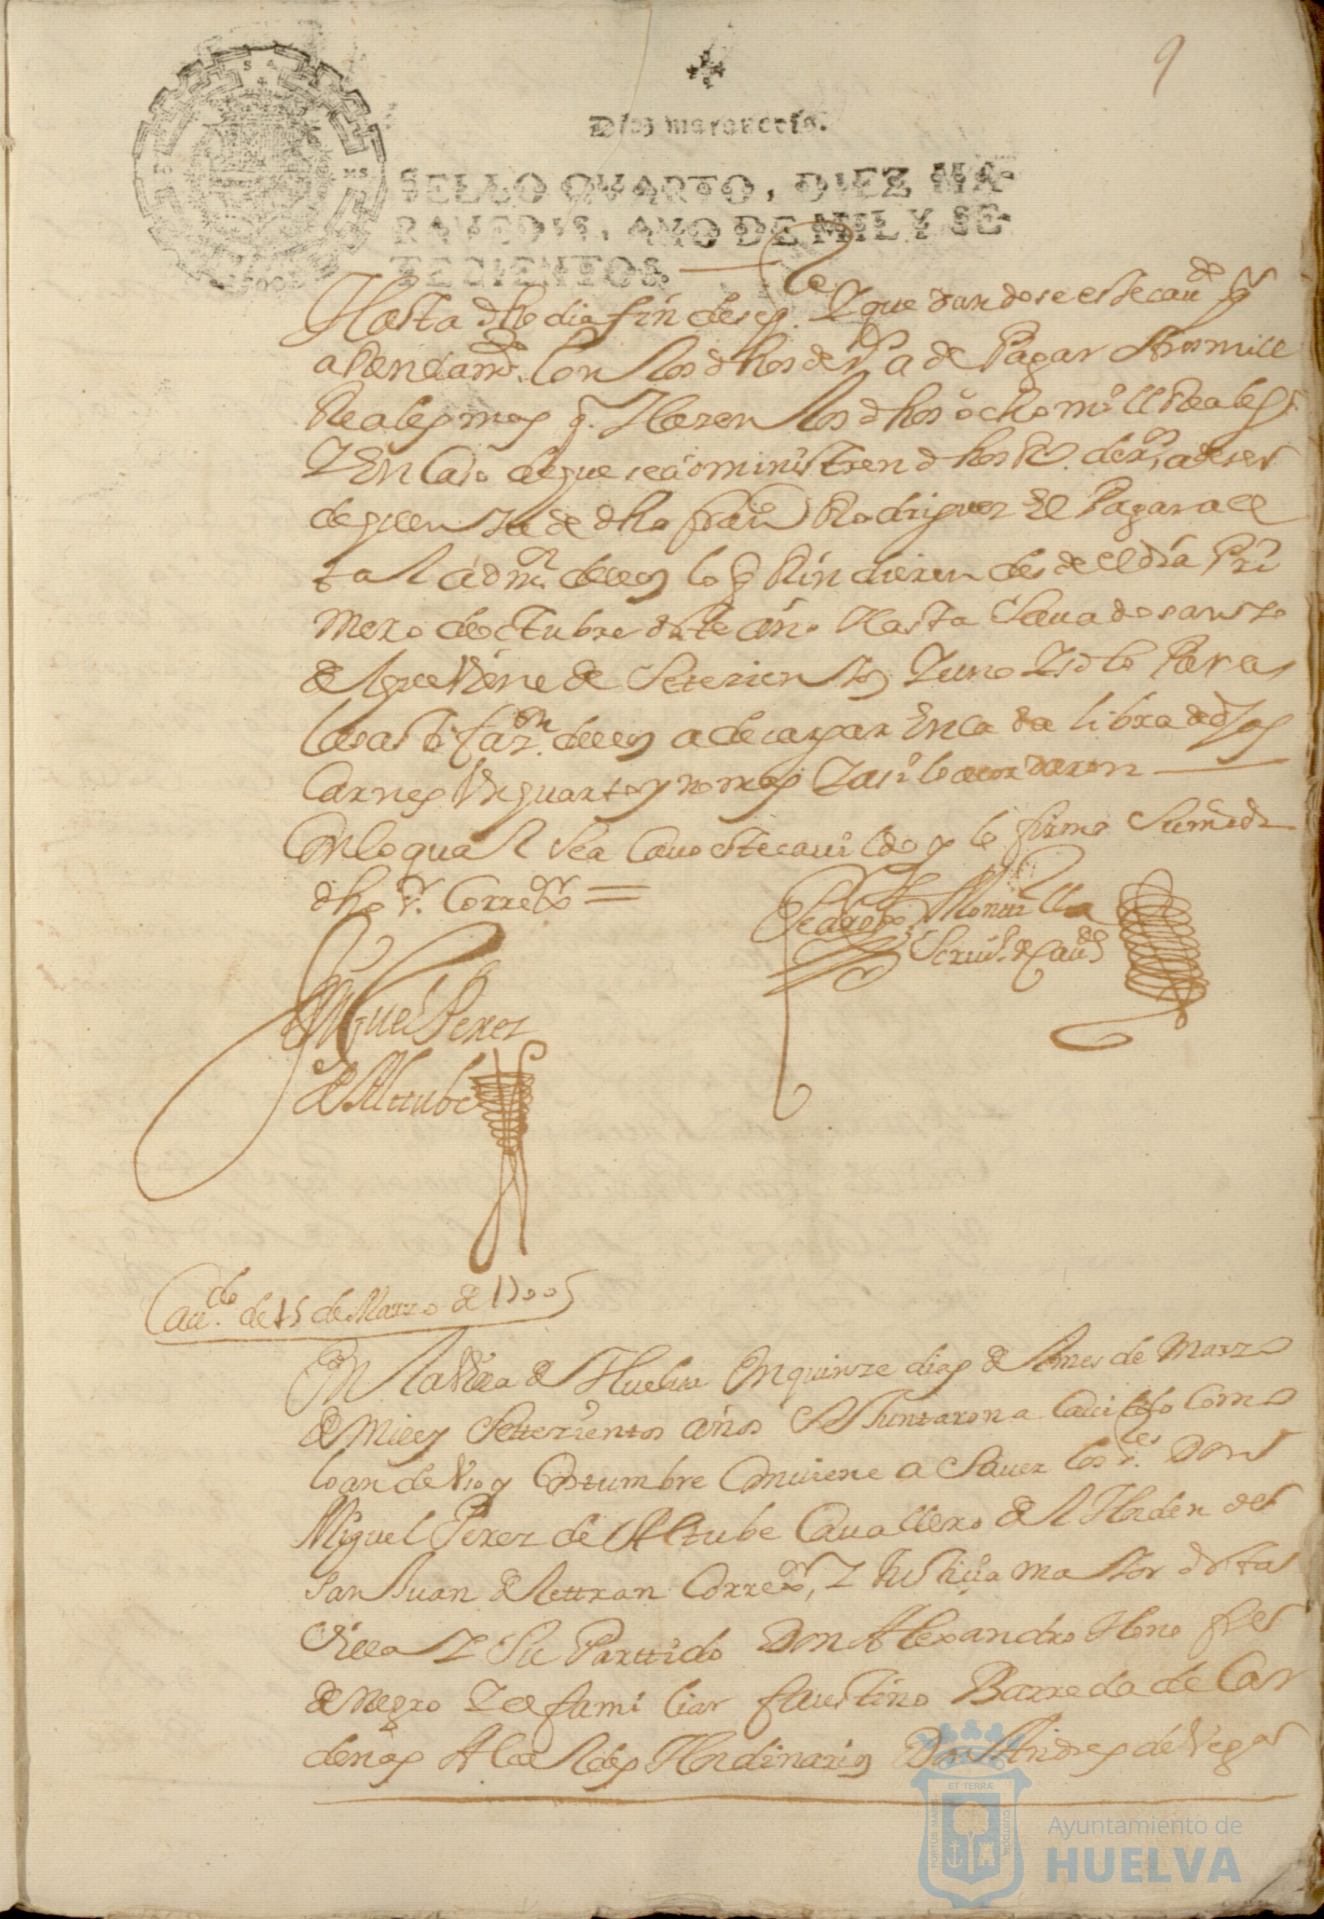 9
Diez maravedis.
SELLO QVARTO, DIEZ MA-
RAVEDIS, AÑO DE MIL Y SE-
TECIENTOS.
Hasta dho dia fin de seg. Y quedandose este cauᵈᵒ
con los dhos derˢ a de Pagar dos mill
Reales mas q. Hazen los dhos ocho mill Reales
Y En Caso de que se administren dhos R. derˢ, a de ser
de quenta de dho franᶜᵒ Rodriguez el Pagar a
la admⁿ de ellos lo q Rindieren desde el dia Pri
mero de octubre deste año Hasta Sauado santo
de que Viene de Setezientos Y uno Y solo Para
la satisfazᵒⁿ de ellos a de cargar En cada libra de las
Carnes Un quarto y no mas Y asi lo acordaron
Con lo qual se acauo este cauildo y lo firmo Su mrd
dho sʳ. Corregᵒʳ =
Miguel Perez
de Altube
Pedro Montilla
Scriuᵒ. de Cauᵈᵒ
Cauᵈᵒ. de 15 de Marzo de 1700
En la Villa de Huelva En quinze dias del mes de Marzo
de mill y Settezientos años se Juntaron a Cauildo Como
lo an de Vso y Costumbre Conuiene a Sauer los sʳᵉˢ. Don
Miguel Perez de Altube Cauallero del Horden de
San Juan de Lettran Corregᵒʳ, Y Justizia maior desta
Villa Y Su Parttido Don Alexandro Hono fre
de Negro Y el famí liar faustino Barreda de Car
denas Alcaldes Hordinarios Don Andres de Vega
ET TERRÆ
PORTUS MARIS
CUSTODIA
Ayuntamiento de
HUELVA